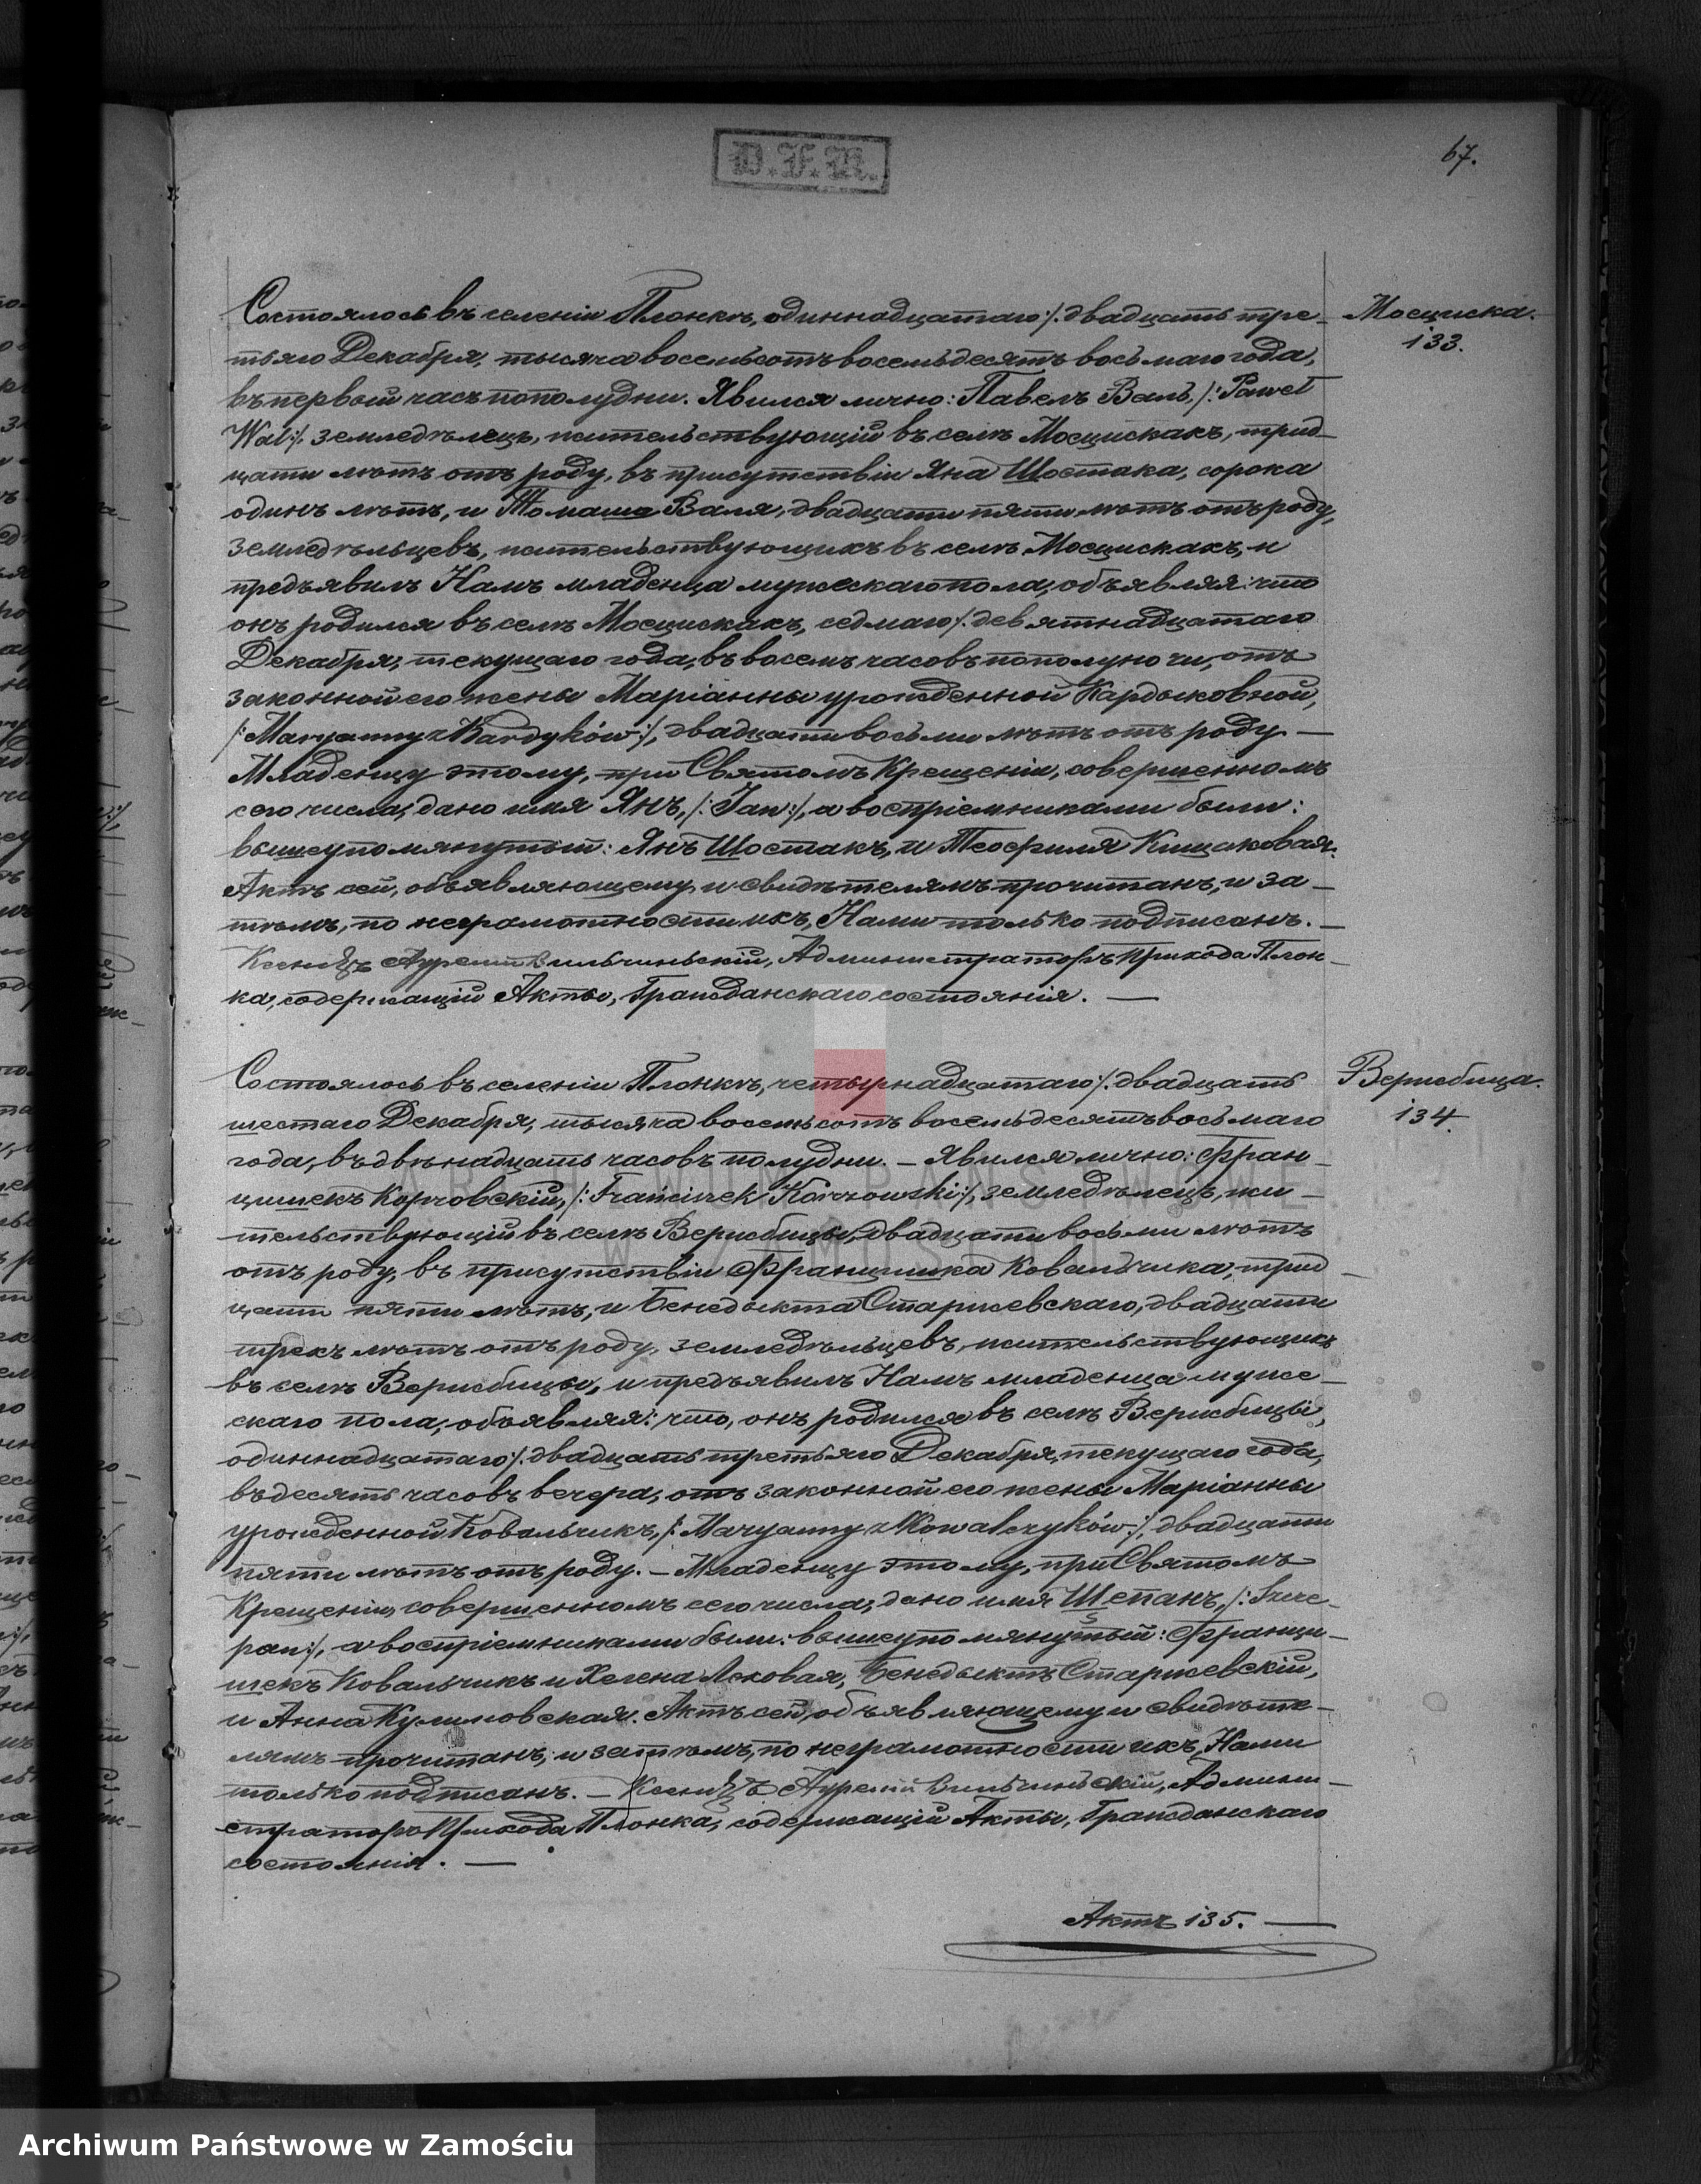 D.F.R.
67.
Мосциска.
133.
Состоялось въ селеніи Плонкѣ, одиннадцатаго /. двадцать тре-
тьяго Декабря, тысяча восемьсотъ восемьдесятъ восьмаго года,
въ первый часъ пополудни. Явился лично: Павелъ Валь, /: Paweł
Wal :/, земледѣлецъ, жительствующій въ селѣ Мосцискахъ, трид-
цати лѣтъ отъ роду, въ присутствіи Яна Шостака, сорока
одинъ лѣтъ, и Томаша Валя, двадцати пяти лѣтъ отъ роду,
земледѣльцевъ, жительствующихъ въ селѣ Мосцискахъ, и
предъявилъ Намъ младенца мужескаго пола, объявляя: что
онъ родился въ селѣ Мосцискахъ, седмаго /. девятнадцатаго
Декабря, текущаго года, въ восемъ часовъ пополуночи, отъ
законной его жены Маріанны урожденной Кардыковной,
/: Maryanny z Kardyków :/, двадцати восьми лѣтъ отъ роду. —
Младенцу этому, при Святомъ Крещеніи, совершенномъ
сего числа, дано имя Янъ, /: Jan :/, а воспріемниками были:
вышеупомянутый: Янъ Шостакъ, и Теофиля Кицаковая.
Актъ сей, объявляющему и свидѣтелямъ прочитанъ, и за-
тѣмъ, по неграмотности ихъ, Нами только подписанъ. —
Ксендзъ Аурелій Вильчиньскій, Администраторъ Прихода Плон-
ка, содержащій Акты, Гражданскаго состоянія. —
Вержбица.
134.
Состоялось въ селеніи Плонкѣ, четырнадцатаго /. двадцать
шестаго Декабря, тысяча восемьсотъ восемьдесятъ восьмаго
года, въ двѣнадцать часовъ полудни. — Явился лично: Фран-
цишекъ Корчовскій, /: Franciszek Korczowski :/, земледѣлецъ, жи-
тельствующій въ селѣ Вержбицы, двадцати восьми лѣтъ
отъ роду, въ присутствіи Францишка Ковальчика, трид-
цати пяти лѣтъ, и Бенедыкта Старжевскаго, двадцати
трехъ лѣтъ отъ роду, земледѣльцевъ, жительствующихъ
въ селѣ Вержбицы, и предъявилъ Намъ младенца муже-
скаго пола, объявляя: что, онъ родился въ селѣ Вержбицы,
одиннадцатаго /. двадцать третьяго Декабря, текущаго года,
въ десять часовъ вечера, отъ законной его жены Маріанны
урожденной Ковальчикъ, /: Maryanny z Kowalczyków :/, двадцати
пяти лѣтъ отъ роду. — Младенцу этому, при Святомъ
Крещеніи, совершенномъ сего числа, дано имя Щепанъ, /: Szcze-
pan :/, а воспріемниками были: вышеупомянутый: Франци-
шекъ Ковальчикъ и Хелена Леховая, Бенедыктъ Старжевскій,
и Анна Куликовская. Актъ сей, объявляющему и свидѣте-
лямъ прочитанъ, и затѣмъ, по неграмотности ихъ, Нами
только подписанъ. — Ксендзъ Аурелій Вильчиньскій, Админи-
страторъ Прихода Плонка, содержащій Акты, Гражданскаго
состоянія. —
Актъ 135. —
ARCHIWUM PAŃSTWOWE
W ZAMOŚCIU
Archiwum Państwowe w Zamościu